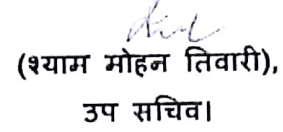 (श्याम मोहन तिवारी),
उप सचिव।